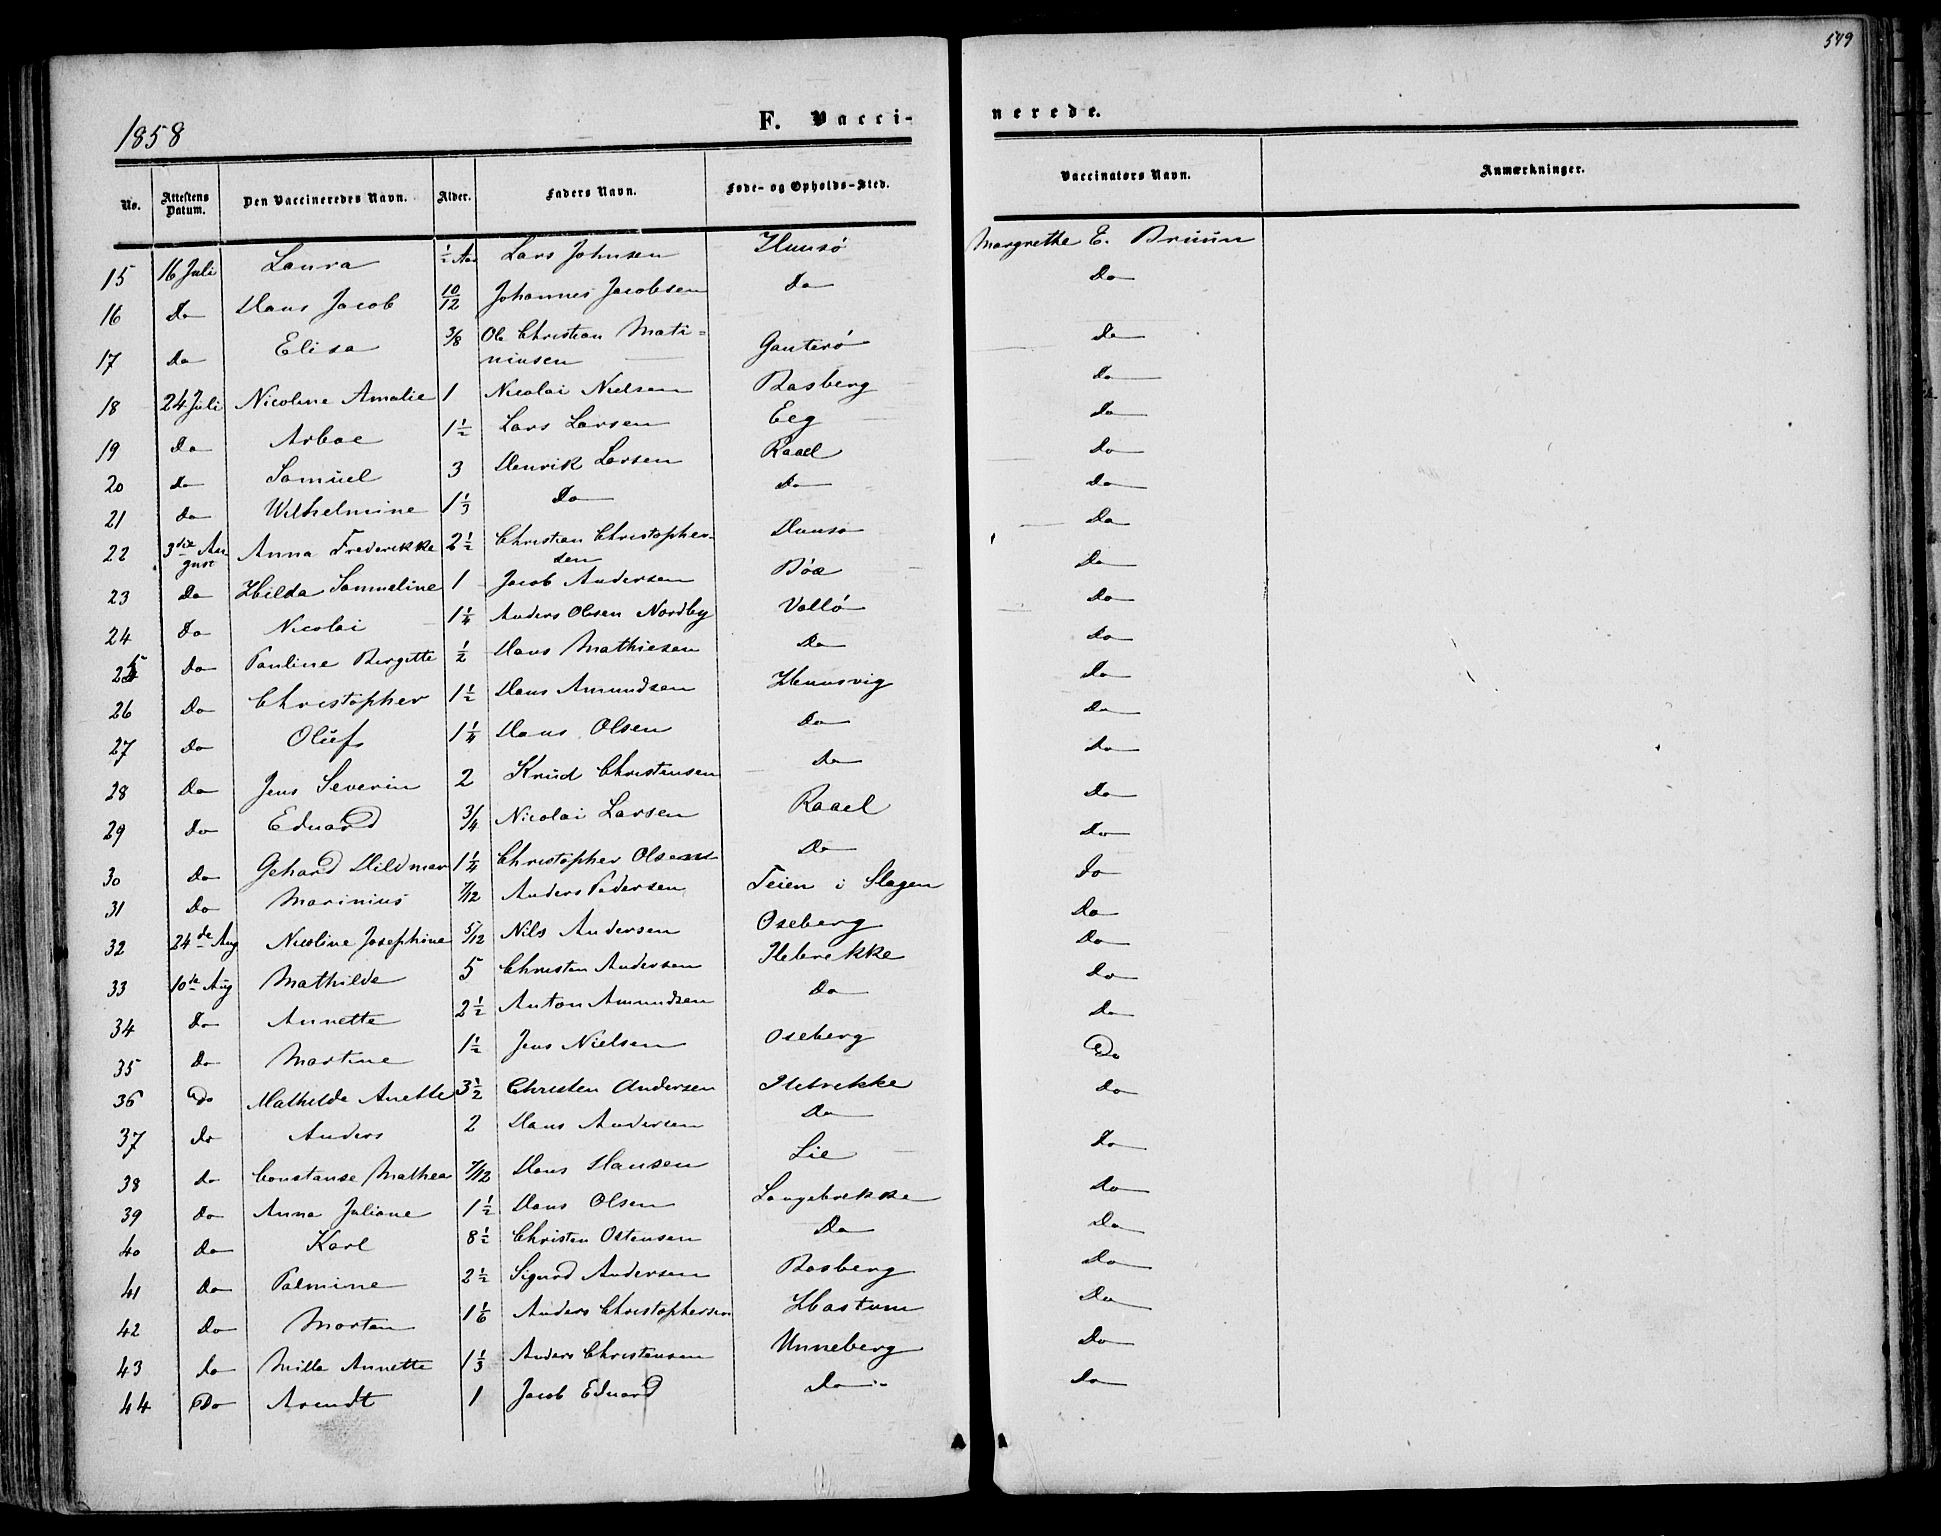 549
1858
F. Vacci-nerede.
No. Attestens Datum. Den Vaccineredes Navn. Alder. Faders Navn. Føde- og Opholds-Sted. Vaccinators Navn. Anmærkninger.
15 16 Juli Laura ½ Aar Lars Johnsen Husø Margrethe E. Bruun
16 Do Hans Jacob 10/12 Johannes Jacobsen Do Do
17 Do Elisa 3/8 Ole Christian Mati=
niusen Gauterø Do
18 24 Juli Nicoline Amalie 1 Nicolai Nielsen Basberg Do
19 Do Arboe 1½ Lars Larsen Eeg Do
20 Do Samuel 3 Henrik Larsen Raael Do
21 Do Wilhelmine 1⅓ Do Do Do
22 3die Au
gust Anna Frederikke 2½ Christian Christopher-
sen Husø Do
23 Do Hilda Sammeline 1 Jacob Andersen Bøe Do
24 Do Nicolai 1¼ Anders Olsen Nordby Vallø Do
25 Do Pauline Birgitte ½ Hans Mathiesen Do Do
26 Do Christopher 1½ Hans Amundsen Husvig Do
27 Do Oluf 1¼ Hans Olsen Do Do
28 Do Jens Severin 2 Knud Christensen Do Do
29 Do Eduard 3/4 Nicolai Larsen Raael Do
30 Do Gehard Hildmar 1¼ Christopher Olsen Do Do
31 Do Marinius 7/12 Anders Pedersen Teien i Slagen Do
32 24de Aug Nicoline Josephine 5/12 Nils Andersen Oseberg Do
33 10de Aug Mathilde 5 Christen Andersen Ilebrekke Do
34 Do Annette 2½ Anton Amundsen Do Do
35 Do Martine 1½ Jens Nielsen Oseberg Do
36 Do Mathilde Anette 3½ Christen Andersen Ilebrekke Do
37 Do Anders 2 Hans Andersen Do Do
38 Do Constanse Mathea 7/12 Hans Hansen Lie Do
39 Do Anna Juliane 1½ Hans Olsen Langebrekke Do
40 Do Karl 8½ Christen Ostensen Do Do
41 Do Palmine 2½ Sigurd Andersen Basberg Do
42 Do Morten 1 1/6 Anders Christophersen Hastum Do
43 Do Milla Annette 1⅓ Anders Christensen Unneberg Do
44 Do Arendt 1 Jacob Eduard Do Do